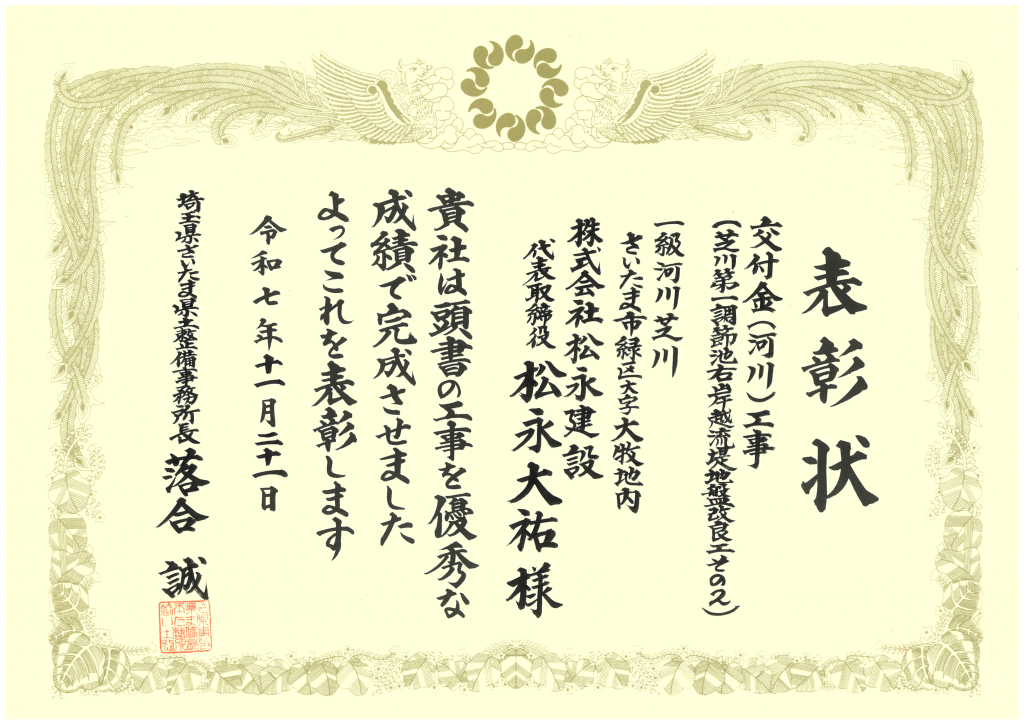 表彰状
交付金(河川)工事
(芝川第一調節池右岸越流堤地盤改良工その2)
一級河川芝川
さいたま市緑区大字大牧地内
株式会社松永建設
代表取締役 松永大祐様
貴社は頭書の工事を優秀な
成績で完成させました
よってこれを表彰します
令和七年十一月二十一日
埼玉県さいたま県土整備事務所長 落合 誠